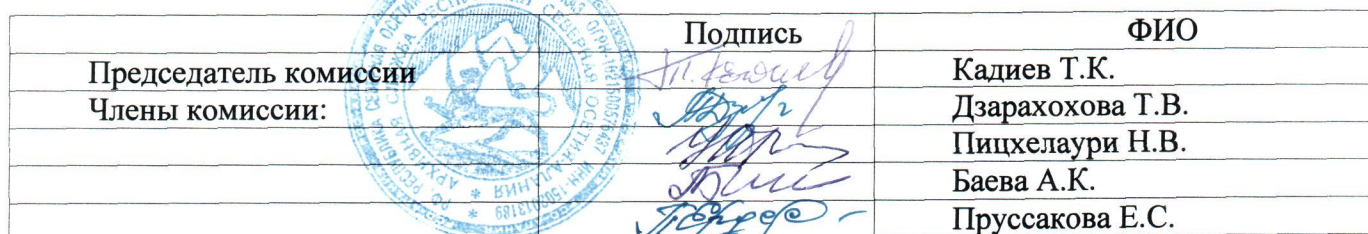 Подпись ФИО
Председатель комиссии Кадиев Т.К.
Члены комиссии: Дзарахохова Т.В.
Пицхелаури Н.В.
Баева А.К.
Пруссакова Е.С.
АРХИВНАЯ СЛУЖБА РЕСПУБЛИКИ СЕВЕРНАЯ ОСЕТИЯ-АЛАНИЯ